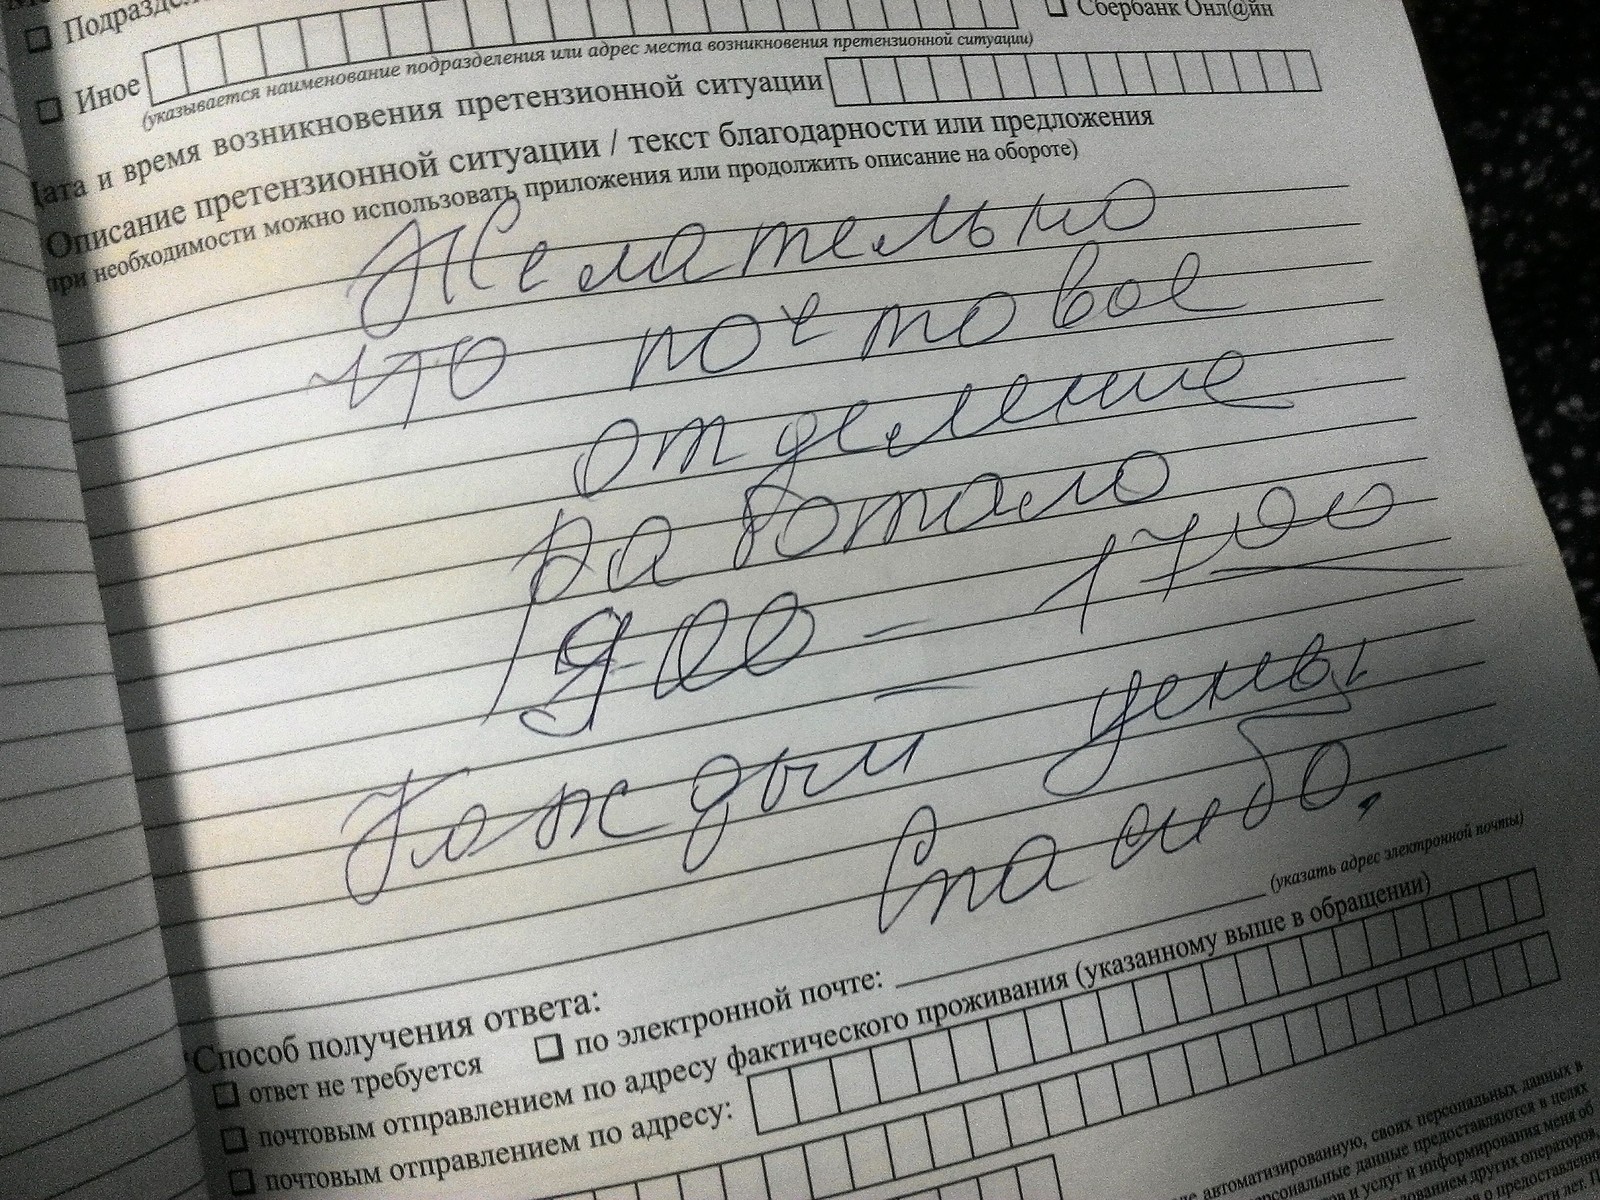 Сбербанк Онл@йн
Иное
(указывается наименование подразделения или адрес места возникновения претензионной ситуации)
Дата и время возникновения претензионной ситуации
Описание претензионной ситуации / текст благодарности или предложения
при необходимости можно использовать приложения или продолжить описание на обороте)
Желательно
что почтовое
отделение
работало
9 00 - 17 00
Каждый день
Спасибо.
(указать адрес электронной почты)
Способ получения ответа:
ответ не требуется по электронной почте:
почтовым отправлением по адресу фактического проживания (указанному выше в обращении)
почтовым отправлением по адресу:
автоматизированную, своих персональных данных в
персональные данные предоставляются в целях
и услуг и информирования меня об
других операторов,